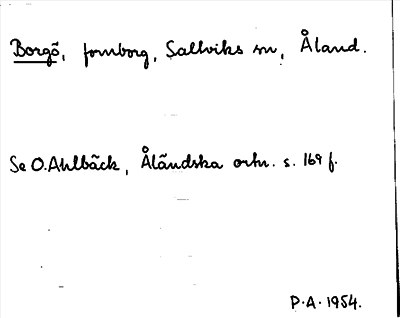 Borgö, fornborg, Saltviks sn, Åland.
Se O. Ahlbäck, Åländska ortn. s. 169 f.
P.A. 1954.